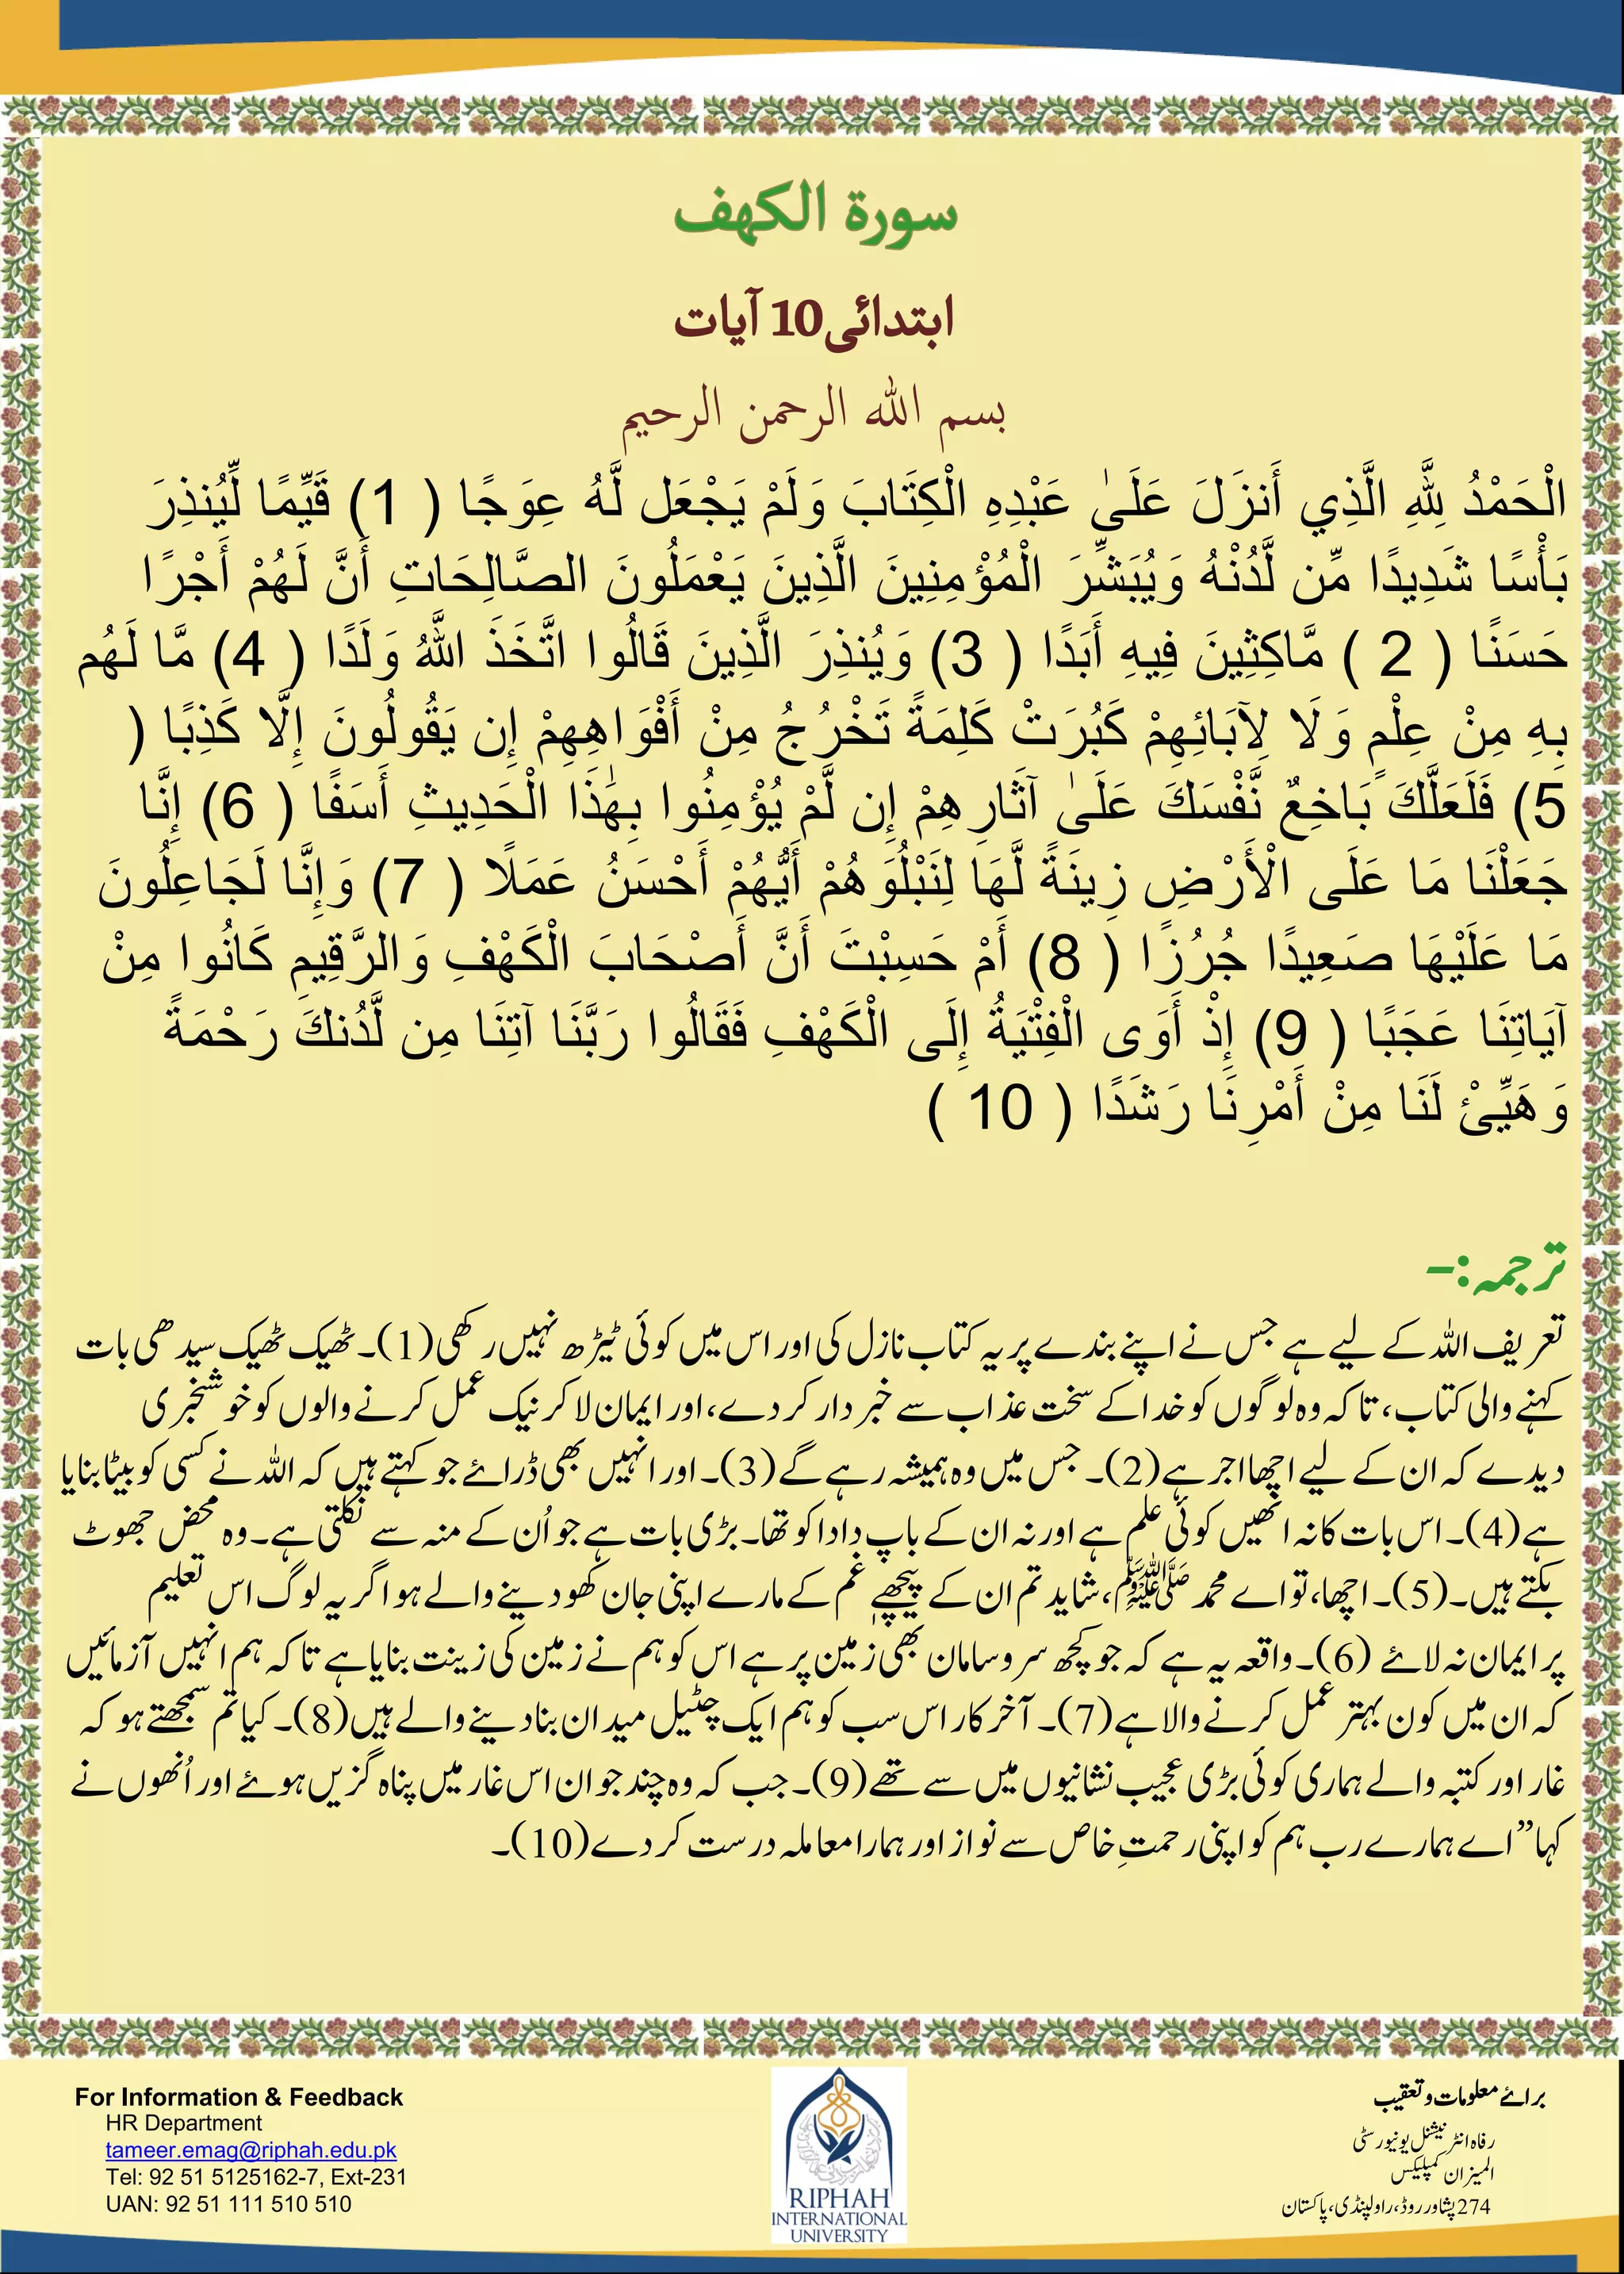 سورة الكهف
ابتدائی 10 آیات
بسم الله الرحمن الرحيم
الْحَمْدُ لِلَّهِ الَّذِي أَنزَلَ عَلَىٰ عَبْدِهِ الْكِتَابَ وَلَمْ يَجْعَل لَّهُ عِوَجًا ( 1) قَيِّمًا لِّيُنذِرَ
بَأْسًا شَدِيدًا مِّن لَّدُنْهُ وَيُبَشِّرَ الْمُؤْمِنِينَ الَّذِينَ يَعْمَلُونَ الصَّالِحَاتِ أَنَّ لَهُمْ أَجْرًا
حَسَنًا ( 2 ) مَّاكِثِينَ فِيهِ أَبَدًا ( 3) وَيُنذِرَ الَّذِينَ قَالُوا اتَّخَذَ اللَّهُ وَلَدًا ( 4) مَّا لَهُم
بِهِ مِنْ عِلْمٍ وَلَا لِآبَائِهِمْ كَبُرَتْ كَلِمَةً تَخْرُجُ مِنْ أَفْوَاهِهِمْ إِن يَقُولُونَ إِلَّا كَذِبًا (
5) فَلَعَلَّكَ بَاخِعٌ نَّفْسَكَ عَلَىٰ آثَارِهِمْ إِن لَّمْ يُؤْمِنُوا بِهَٰذَا الْحَدِيثِ أَسَفًا ( 6) إِنَّا
جَعَلْنَا مَا عَلَى الْأَرْضِ زِينَةً لَّهَا لِنَبْلُوَهُمْ أَيُّهُمْ أَحْسَنُ عَمَلًا ( 7) وَإِنَّا لَجَاعِلُونَ
مَا عَلَيْهَا صَعِيدًا جُرُزًا ( 8) أَمْ حَسِبْتَ أَنَّ أَصْحَابَ الْكَهْفِ وَالرَّقِيمِ كَانُوا مِنْ
آيَاتِنَا عَجَبًا ( 9) إِذْ أَوَى الْفِتْيَةُ إِلَى الْكَهْفِ فَقَالُوا رَبَّنَا آتِنَا مِن لَّدُنكَ رَحْمَةً
وَهَيِّئْ لَنَا مِنْ أَمْرِنَا رَشَدًا ( 10 )
ترجمہ:-
تعریف اللہ کے لیے ہے جس نے اپنے بندے پر یہ کتاب نازل کی اور اس میں کوئی ٹیڑھ نہیں رکھی (1)۔ ٹھیک ٹھیک سیدھی بات
کہنے والی کتاب، تاکہ وہ لوگوں کو خدا کے سخت عذاب سے خبر دار کر دے، اور ایمان لا کر نیک عمل کرنے والوں کو خوشخبری
دیدے کہ ان کے لیے اچھا اجر ہے (2)۔ جس میں وہ ہمیشہ رہے گے (3)۔ اور انہیں بھی ڈرائے جو کہتے ہیں کہ اللہ نے کسی کو بیٹا بنایا
ہے (4)۔ اس بات کا نہ انھیں کوئی علم ہے اور نہ ان کے باپ دادا کو تھا۔ بڑی بات ہے جو اُن کے منہ سے نکلتی ہے۔ وہ محض جھوٹ
بکتے ہیں۔ (5)۔ اچھا، تو اے محمد ﷺ، شاید تم ان کے پیچھے غم کے مارے اپنی جان کھو دینے والے ہو اگر یہ لوگ اس تعلیم
پر ایمان نہ لائے (6)۔ واقعہ یہ ہے کہ جو کچھ سر و سامان بھی زمین پر ہے اس کو ہم نے زمین کی زینت بنایا ہے تاکہ ہم انہیں آزمائیں
کہ ان میں کون بہتر عمل کرنے والا ہے (7)۔ آخر کار اس سب کو ہم ایک چٹیل میدان بنا دینے والے ہیں (8)۔ کیا تم سمجھتے ہو کہ
غار اور کتبہ والے ہماری کوئی بڑی عجیب نشانیوں میں سے تھے (9)۔ جب کہ وہ چند جوان اس غار میں پناہ گزیں ہوئے اور اُنھوں نے
کہا ”اے ہمارے رب ہم کو اپنی رحمتِ خاص سے نواز اور ہمارا معاملہ درست کر دے (10)۔
For Information & Feedback
HR Department
tameer.emag@riphah.edu.pk
Tel: 92 51 5125162-7, Ext-231
UAN: 92 51 111 510 510
RIPHAH
INTERNATIONAL
UNIVERSITY
برائے معلومات و تعقیب
رفاہ انٹر نیشنل یونیورسٹی
المیزان کمپلیکس
274 پشاور روڈ، راولپنڈی، پاکستان